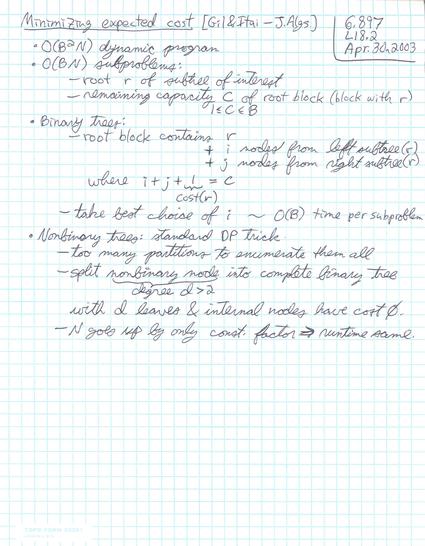 Minimizing expected cost [Gil&Itai - J.Algs.]
6.897
L18.2
Apr.30,2003
• O(B²N) dynamic program
• O(BN) subproblems:
- root r of subtree of interest
- remaining capacity C of root block (block with r)
1≤C≤B
• Binary trees:
- root block contains r
+ i nodes from left subtree(r)
+ j nodes from right subtree(r)
where i+j+1 = C
cost(r)
- take best choise of i ~ O(B) time per subproblem
• Nonbinary trees: standard DP trick
- too many partitions to enumerate them all
- split nonbinary node into complete binary tree
degree d>2
with d leaves & internal nodes have cost ∅.
- N goes up by only const. factor ⇒ runtime same.